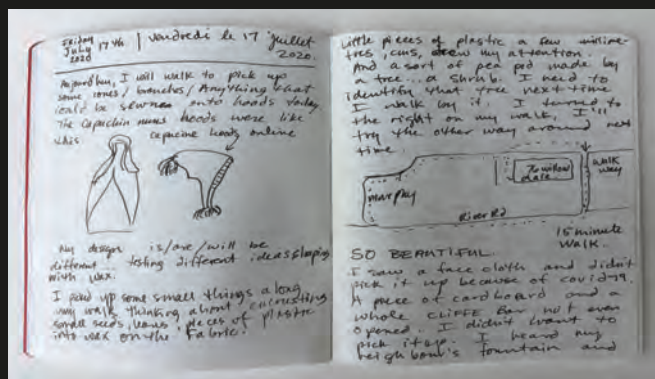 Friday July 17th 2020 | vendredi le 17 juillet 2020.
Aujourd'hui, I will walk to pick up
some cones/branches/Anything that
could be sewn onto hoods today
The Capuchin nuns hoods were like
this
capucine hoods online
My design is/are/will be
different... testing different ideas
with wax.
I paid up some small things along
my walk thinking about encrusting
small seeds, leaves, pieces of plastic
into wax on the fabric.
Little pieces of plastic a few millime-
tres, cms, drew my attention.
And a sort of pea pod made by
a tree... a shrub. I need to
identify that tree next time
I walk by it. I turned to
the right on my walk, I'll
try the other way around next
time.
willow
place.
walk
way
River Rd
15 minute
walk.
SO BEAUTIFUL.
I saw a face cloth and didn't
pick it up because of covid-19.
A piece of cardboard and a
whole CLIFFE Bar not even
opened. I didn't want to
pick it up. I heard my
neighbour's fountain and